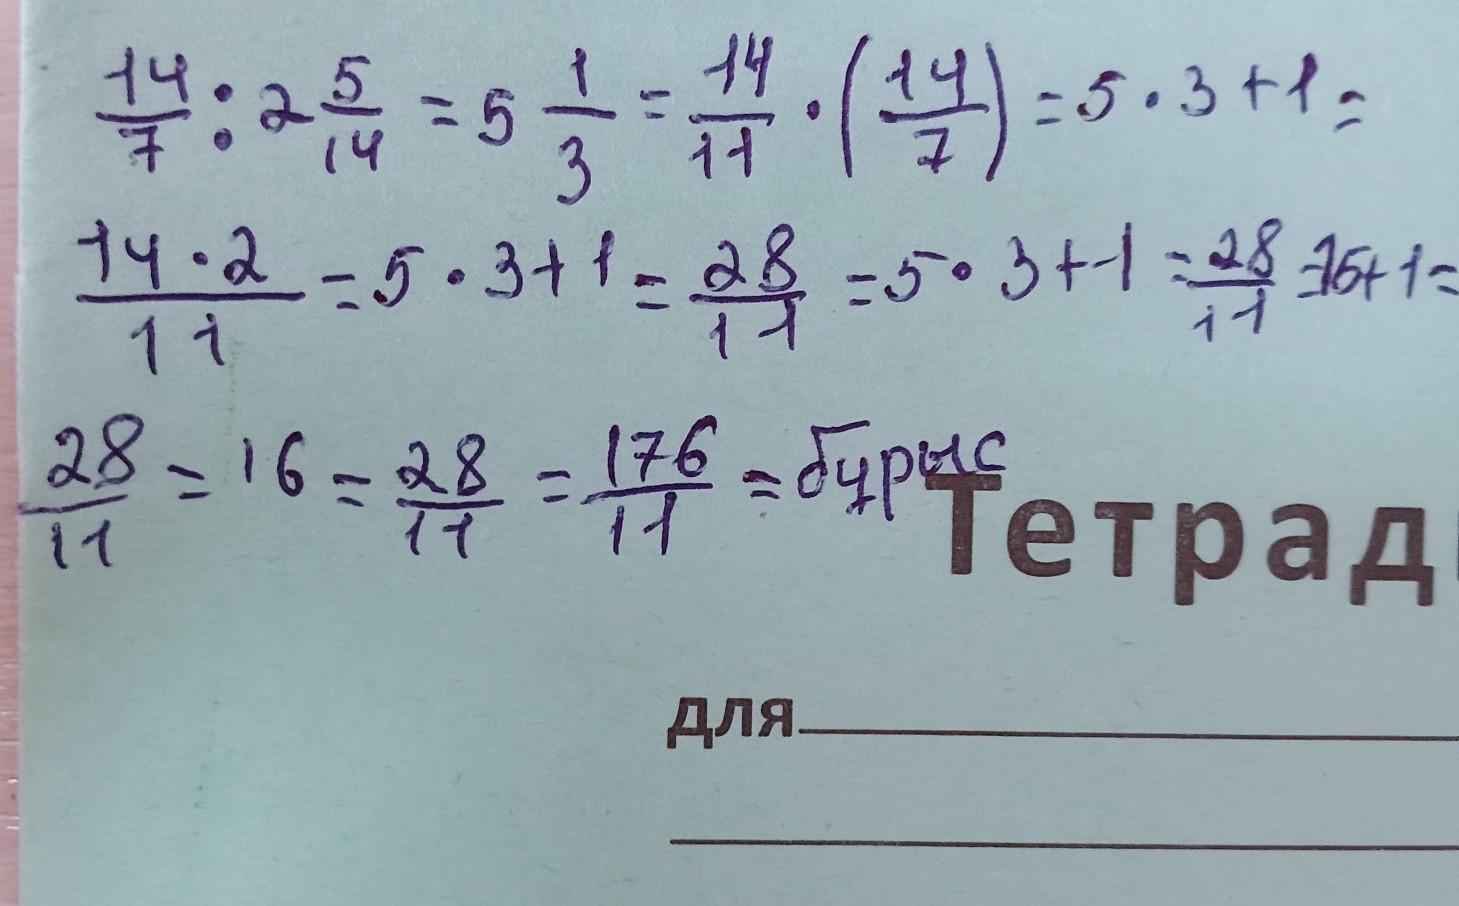 14/7 : 2 5/14 = 5 1/3 = 14/11 · (14/7) = 5 · 3 + 1 =
14 · 2/11 = 5 · 3 + 1 = 28/11 = 5 · 3 + 1 = 28/11 = 15 + 1 =
28/11 = 16 = 28/11 = 176/11 = бұрыс
Тетрад
для